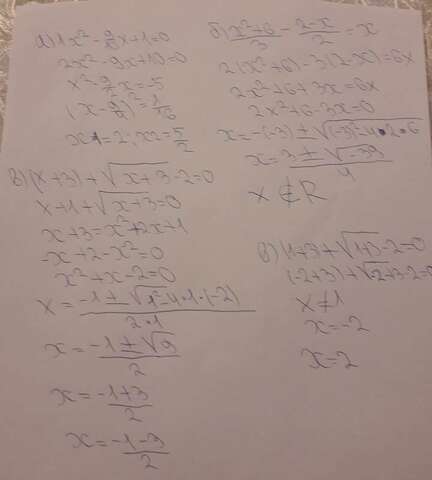 а) 1x² - 9/2 x + 1 = 0
2x² - 9x + 10 = 0
x² - 9/2 x = -5
(x - 9/4)² = 1/16
x1 = 2; x2 = 5/2
б) x²+6/3 - 2-x/2 = x
2(x²+6) - 3(2-x) = 6x
2x² + 6 + 3x = 6x
2x² + 6 - 3x = 0
x = -(-3) ± √(-3)² - 4 • 2 • 6
x = 3 ± √-39 / 4
x ∉ R
в) (x+3) + √x+3 - 2 = 0
x + 1 + √x+3 = 0
x + 3 = x² + 2x + 1
-x + 2 - x² = 0
x² + x - 2 = 0
x = -1 ± √1² - 4 • 1 • (-2) / 2 • 1
x = -1 ± √9 / 2
x = -1+3 / 2
x = -1-3 / 2
в) (1+3 + √1+3 - 2 = 0
(-2+3) + √2+3 - 2 = 0
x ≠ 1
x = -2
x = 2